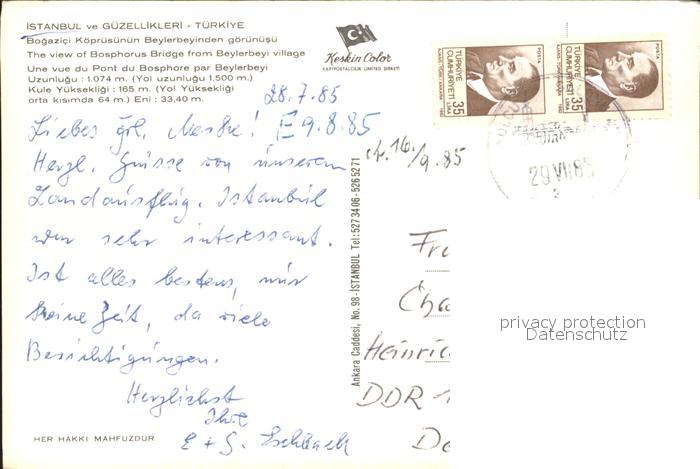 İSTANBUL ve GÜZELLİKLERİ - TÜRKİYE
Boğaziçi Köprüsünün Beylerbeyinden görünüşü
The view of Bosphorus Bridge from Beylerbeyi village
Une vue du Pont du Bosphore par Beylerbeyi
Uzunluğu : 1.074 m. (Yol uzunluğu 1.500 m.)
Kule Yüksekliği : 165 m. (Yol Yüksekliği
orta kısımda 64 m.) Eni : 33,40 m.
Keskin Color
KARTPOSTALCILIK LIMITED ŞİRKETİ
28.7.85
Liebes Frl. ! E 9.8.85
Herzl. Grüsse von unserem
Landausflug. Istanbul
war sehr interessant.
Ist alles bestens, nur
keine Zeit, da viele
Besichtigungen.
Herzlichst
Ihre
E + G. Eschbach
HER HAKKI MAHFUZDUR
Ankara Caddesi, No. 98-İSTANBUL Tel: 5273406-5265271
16./9.85
POSTA
TÜRKİYE
CUMHURİYETİ
35
LİRA
POSTA
TÜRKİYE
CUMHURİYETİ
35
LİRA
29 VII 85
Fr
Cha
Heinric
DDR-1
D
privacy protection
Datenschutz